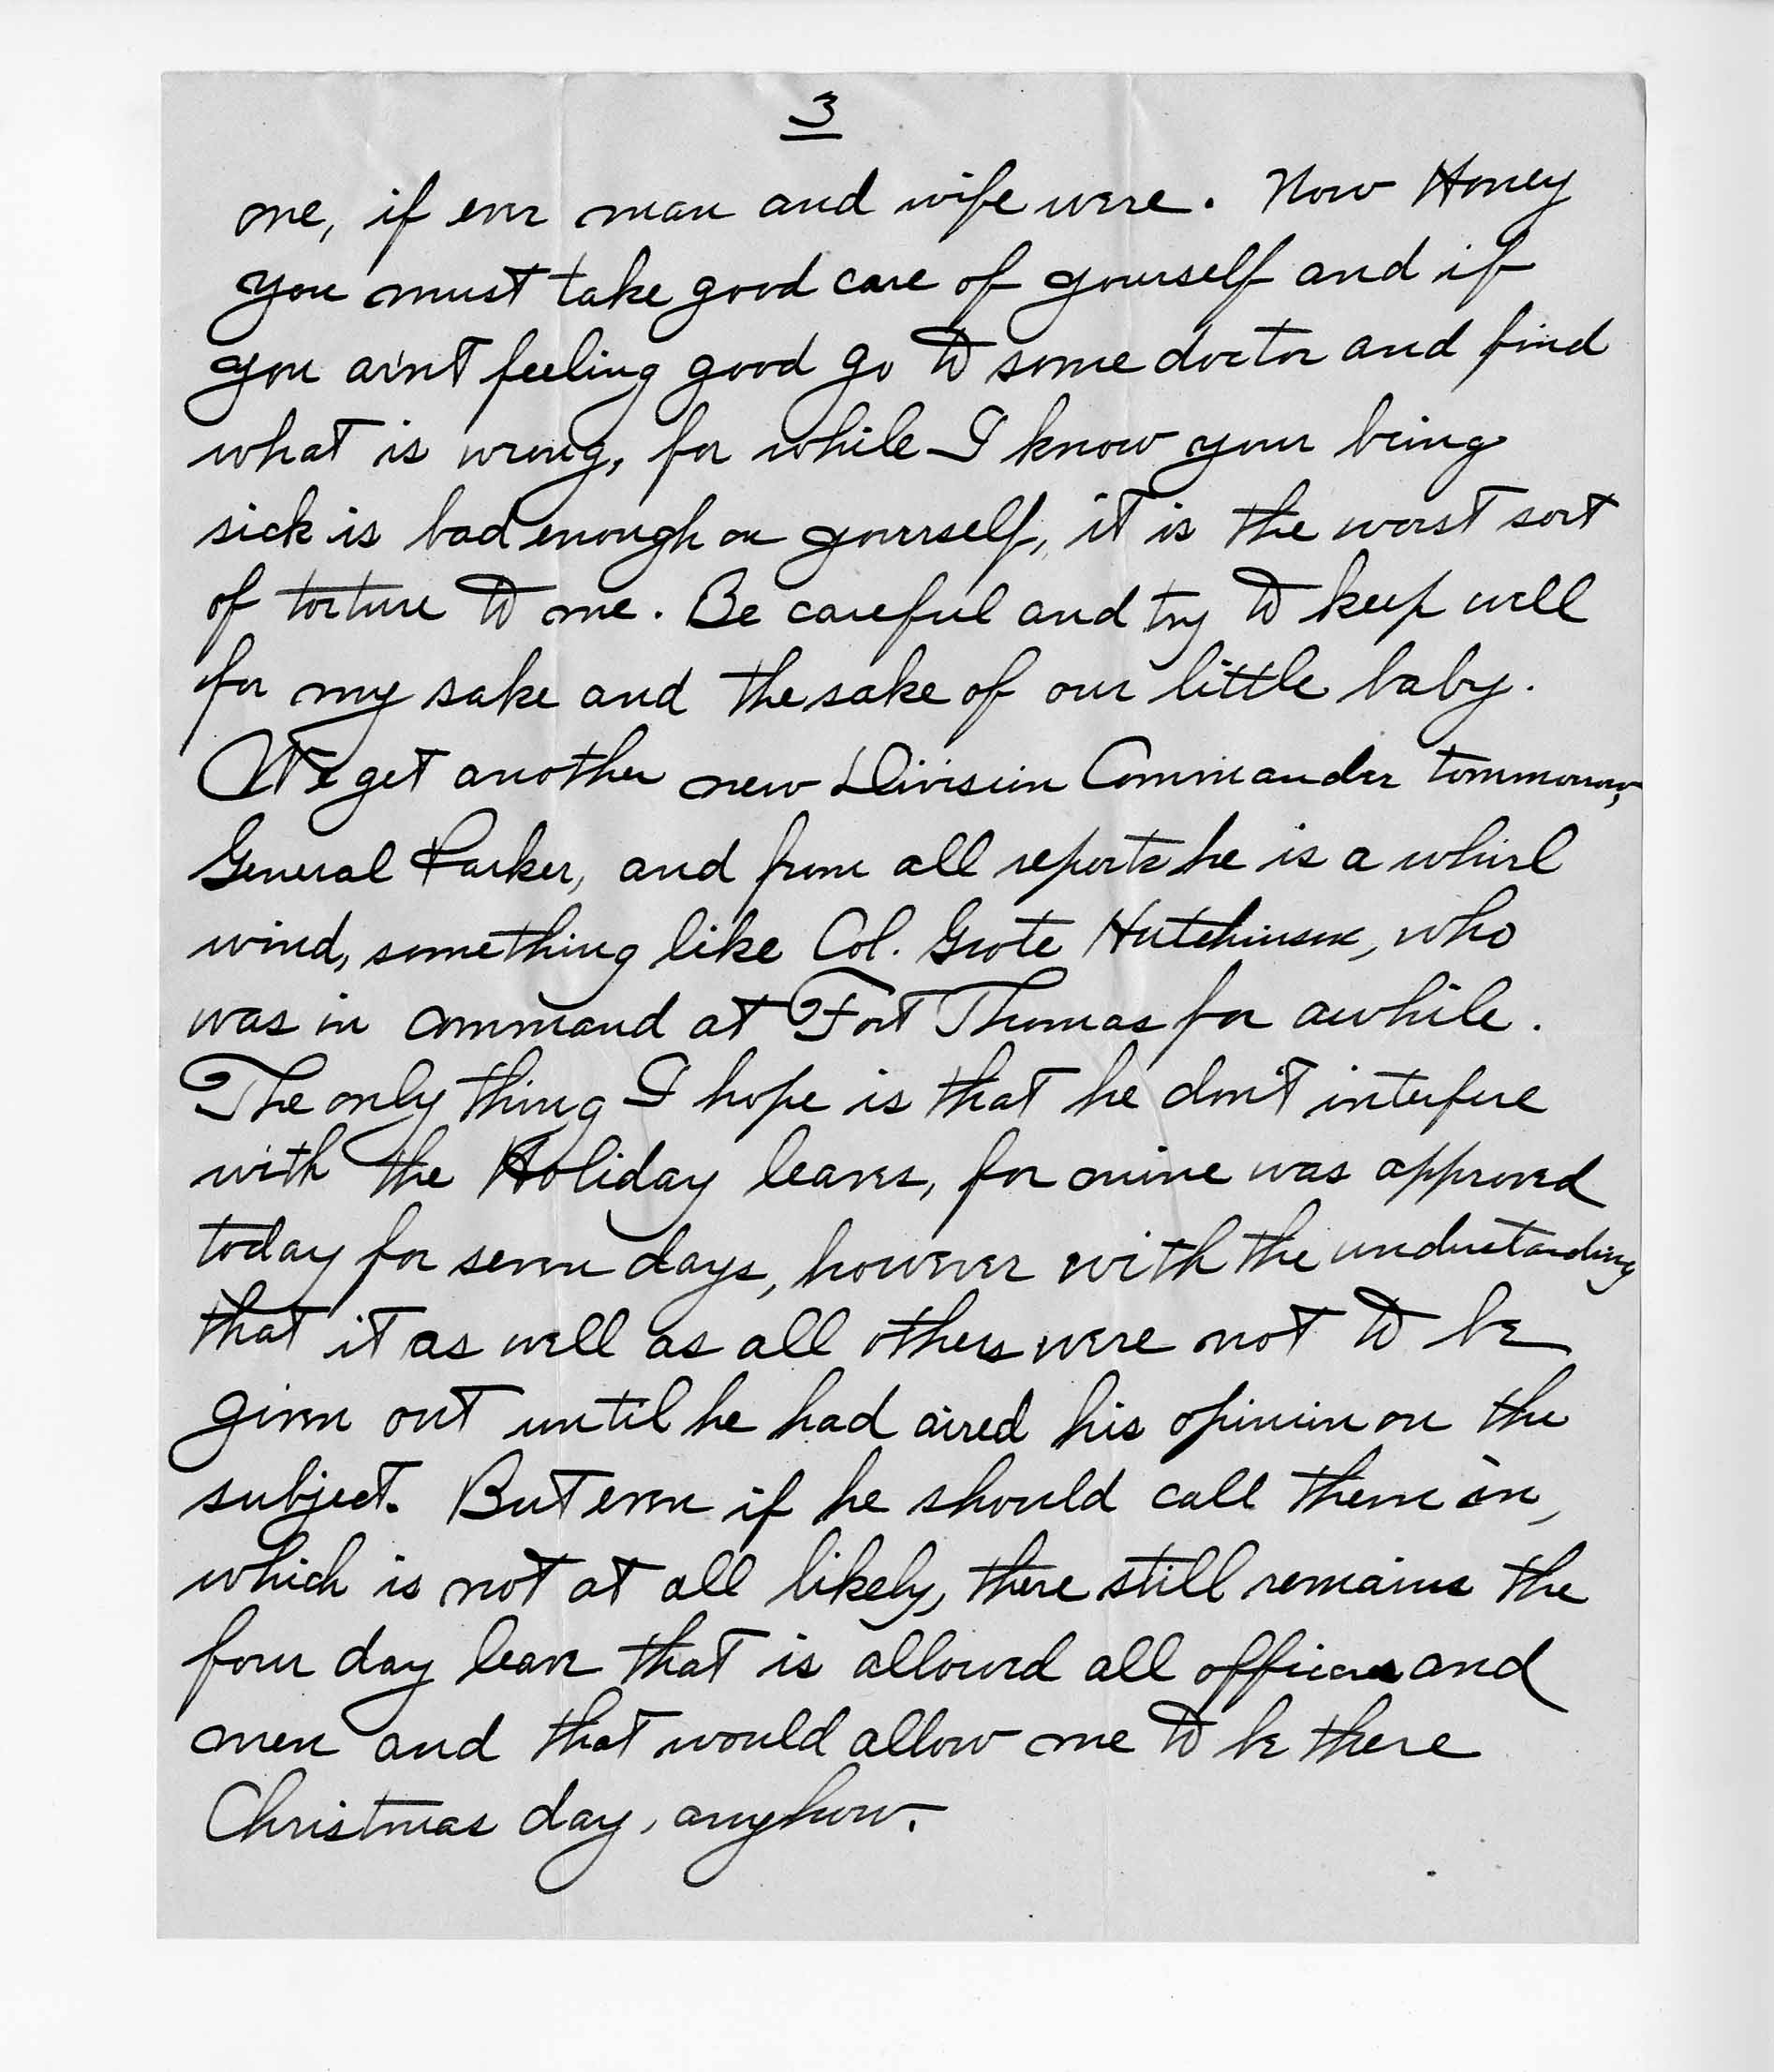 3
one, if ever man and wife were. Now Honey
you must take good care of yourself and if
you ain't feeling good go to some doctor and find
what is wrong, for while I know your being
sick is bad enough on yourself, it is the worst sort
of torture to me. Be careful and try to keep well
for my sake and the sake of our little baby.
We get another new Division Commander tommorrow,
General Parker, and from all reports he is a whirl
wind, something like Col. Grote Hutchinson, who
was in command at Fort Thomas for awhile.
The only thing I hope is that he don't interfere
with the Holiday leaves, for mine was approved
today for seven days, however with the understanding
that it as well as all others were not to be
given out until he had aired his opinion on the
subject. But even if he should call them in,
which is not at all likely, there still remains the
four day leave that is allowed all officers and
men and that would allow me to be there
Christmas day, anyhow.